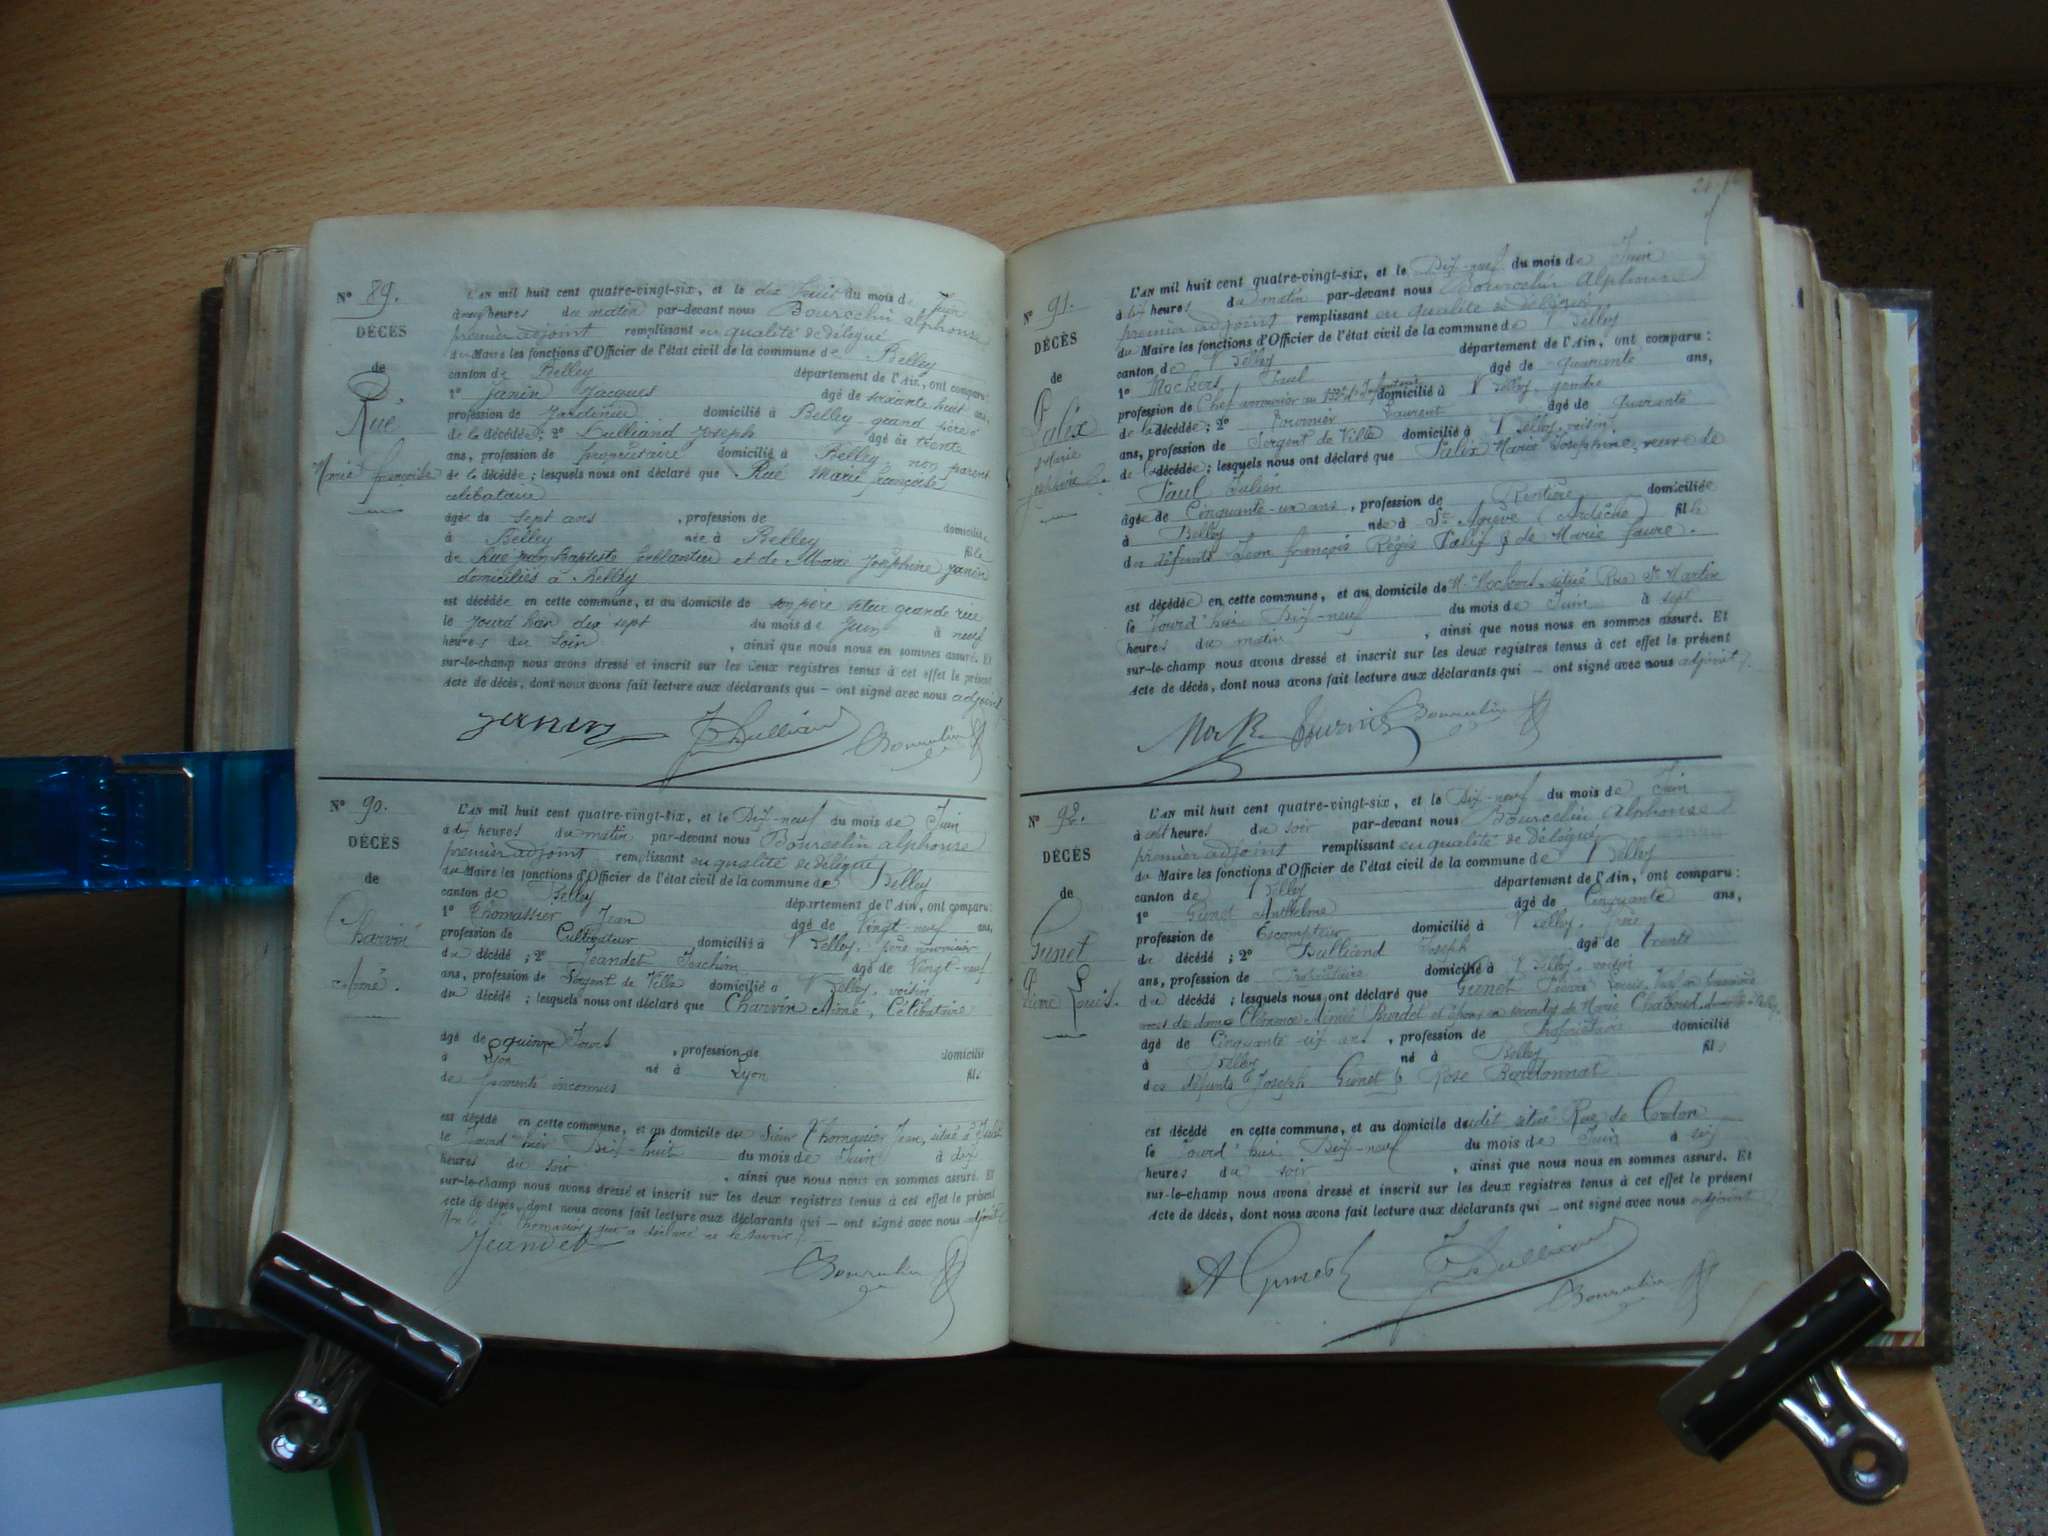 Nº 89.
DÉCÈS
de
Rué
Marie françoise
L'AN mil huit cent quatre-vingt-six, et le dix huit du mois de Juin
à heures du matin par-devant nous Bourcelin alphonse
premier adjoint remplissant en qualité de délégué
du Maire les fonctions d'Officier de l'état civil de la commune de Belley
canton de Belley département de l'Ain, ont comparu :
1º Janin Jacques âgé de soixante huit ans,
profession de Jardinier domicilié à Belley grand père
de la décédée ; 2º Dulliand Joseph âgé de trente
ans, profession de propriétaire domicilié à Belley non parent
de la décédée ; lesquels nous ont déclaré que Rué Marie françoise
célibataire
âgée de sept ans , profession de domiciliée
à Belley née à Belley fille
de Rué Jean Baptiste et de Marie Joséphine Janin
domiciliés à Belley
est décédée en cette commune, et au domicile de son père situé grande rue
le jourd'hier dix sept du mois de Juin à neuf
heures du soir , ainsi que nous nous en sommes assuré. Et
sur-le-champ nous avons dressé et inscrit sur les deux registres tenus à cet effet le présent
acte de décès, dont nous avons fait lecture aux déclarants qui — ont signé avec nous adjoint
Janin J Dulliand Bourcelin
Nº 90.
DÉCÈS
de
Charvin
Aimé.
L'AN mil huit cent quatre-vingt-six, et le Dix-neuf du mois de Juin
à dix heures du matin par-devant nous Bourcelin alphonse
premier adjoint remplissant en qualité de délégué
du Maire les fonctions d'Officier de l'état civil de la commune de Belley
canton de Belley département de l'Ain, ont comparu :
1º Thomassier Jean âgé de Vingt-neuf ans,
profession de Cultivateur domicilié à Belley, père nourricier
du décédé ; 2º Jeandet Joachim âgé de Vingt-neuf
ans, profession de Sergent de Ville domicilié à Belley, voisin
du décédé ; lesquels nous ont déclaré que Charvin Aimé, Célibataire
âgé de quinze Jours , profession de domicilié
à Lyon né à Lyon fils
de parents inconnus
est décédé en cette commune, et au domicile du Sieur Thomassier Jean, situé à
le Jourd'hier Dix-huit du mois de Juin à dix
heures du soir , ainsi que nous nous en sommes assuré. Et
sur-le-champ nous avons dressé et inscrit sur les deux registres tenus à cet effet le présent
acte de décès, dont nous avons fait lecture aux déclarants qui — ont signé avec nous adjoint
Thomassier qui a déclaré ne le savoir
Jeandet Bourcelin
Nº 91.
DÉCÈS
de
Palix
Marie
Joséphine
L'AN mil huit cent quatre-vingt-six, et le Dix-neuf du mois de Juin
à dix heures du matin par-devant nous Bourcelin Alphonse
premier adjoint remplissant en qualité de délégué
du Maire les fonctions d'Officier de l'état civil de la commune de Belley
canton de Belley département de l'Ain, ont comparu :
1º Mockers Paul âgé de quarante ans,
profession de Chef armurier au 133e d'Infanterie domicilié à Belley, gendre
de la décédée ; 2º Fournier Laurent âgé de quarante
ans, profession de Sergent de Ville domicilié à Belley, voisin,
de la décédée ; lesquels nous ont déclaré que Palix Marie Joséphine, veuve de
Paul Julien
âgée de Cinquante-un ans , profession de Rentière domiciliée
à Belley née à St Agrève (Ardèche) fille
des défunts Jean françois Régis Palix & de Marie faure.
est décédée en cette commune, et au domicile de M. Mockers, situé Rue St Martin
le Jourd'hui Dix-neuf du mois de Juin à sept
heures du matin , ainsi que nous nous en sommes assuré. Et
sur-le-champ nous avons dressé et inscrit sur les deux registres tenus à cet effet le présent
acte de décès, dont nous avons fait lecture aux déclarants qui — ont signé avec nous adjoint
Fournier Bourcelin
Nº 92.
DÉCÈS
de
Gunet
Pierre Louis.
L'AN mil huit cent quatre-vingt-six, et le Dix-neuf du mois de Juin
à heures du soir par-devant nous Bourcelin Alphonse
premier adjoint remplissant en qualité de délégué
du Maire les fonctions d'Officier de l'état civil de la commune de Belley
canton de Belley département de l'Ain, ont comparu :
1º Gunet Anthelme âgé de Cinquante ans,
profession de Escompteur domicilié à Belley, frère
du décédé ; 2º Dulliand Joseph âgé de trente
ans, profession de Propriétaire domicilié à Belley, voisin
du décédé ; lesquels nous ont déclaré que Gunet Pierre Louis,
noces de dame Clémence Aimée et époux en secondes de Marie
âgé de Cinquante six ans , profession de Propriétaire domicilié
à Belley né à Belley fils
des défunts Joseph Gunet & Rose
est décédé en cette commune, et au domicile dudit situé Rue de Cordon
le Jourd'hui Dix-neuf du mois de Juin à six
heures du soir , ainsi que nous nous en sommes assuré. Et
sur-le-champ nous avons dressé et inscrit sur les deux registres tenus à cet effet le présent
acte de décès, dont nous avons fait lecture aux déclarants qui — ont signé avec nous adjoint
A Gunet J Dulliand Bourcelin